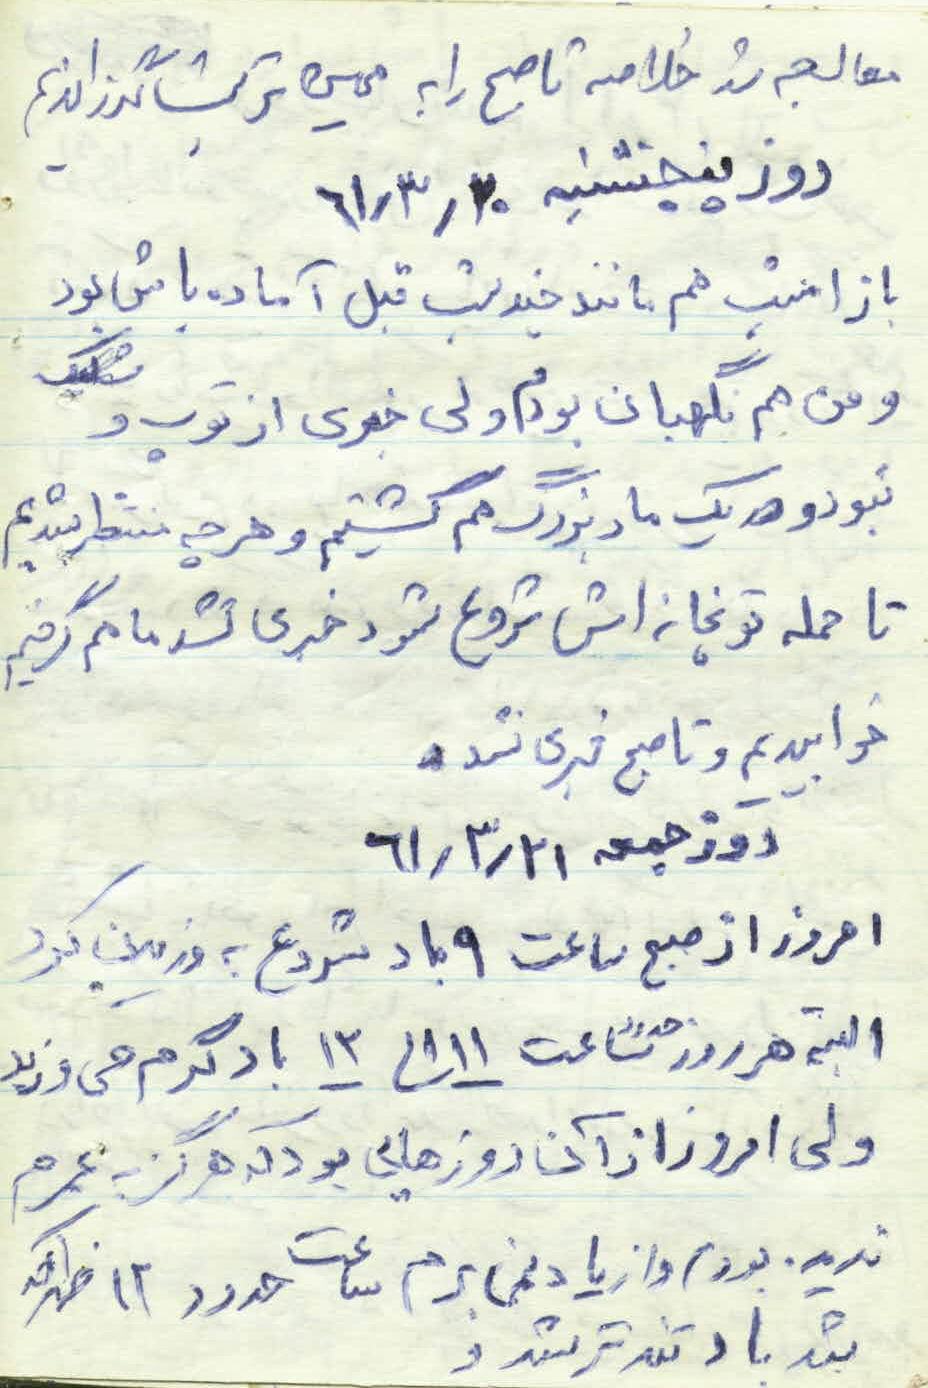 معالجه شد خلاصه تا صبح را به همین ترتیب گذراندیم
روز پنجشنبه ۶۱٫۳٫۲۰
باز امشب هم مانند چند شب قبل آماده باش بود
و من هم نگهبان بودم ولی خبری از توپ و شلیک
نبود و هر یک ما دو بزرگ هم گشتیم و هر چه منتظر شدیم
تا حمله توپخانه اش شروع شود خبری نشد ما هم گرفتیم
خوابیدیم و تا صبح خبری نشد.
روز جمعه ۶۱٫۳٫۲۱
امروز از صبح ساعت ۹ باد شروع به وزیدن کرد
البته هر روز حدود ساعت ۱۱ الی ۱۳ باد گرم می وزید
ولی امروز از آن روزهایی بود که هرگز به عمرم
ندیده بودم و از یاد نمی برم ساعت حدود ۱۲ ظهر که
شد باد تندتر شد و